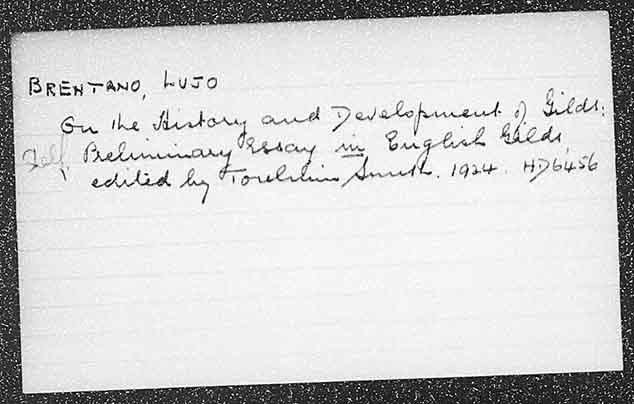 BRENTANO, LUJO
On the History and Development of Gilds:
Preliminary Essay in English Gilds,
edited by Toulmin Smith. 1924. HD6456